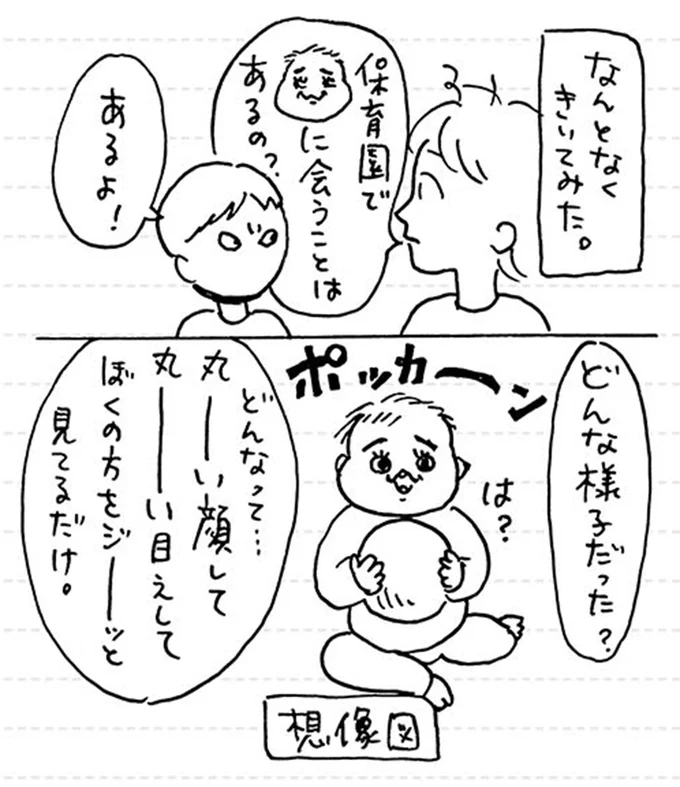 なんとなく
きいてみた。
保育園で
に会うことは
あるの？
あるよ！
どんな様子だった？
ポッカーン
は？
どんなって…
丸――い顔して
丸――い目えして
ぼくの方をジーーッと
見てるだけ。
想像図